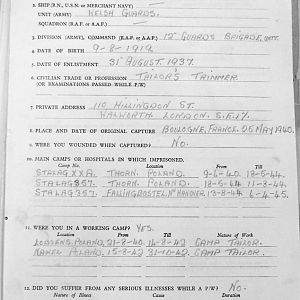 2. SHIP (R.N., U.S.N. or MERCHANT NAVY)
UNIT (ARMY) WELSH GUARDS.
SQUADRON (R.A.F. or A.A.F.)
3. DIVISION (ARMY), COMMAND (R.A.F. or A.A.F.) 12th GUARDS BRIGADE,
4. DATE OF BIRTH 9-8-1919.
5. DATE OF ENLISTMENT 31st AUGUST. 1937.
6. CIVILIAN TRADE OR PROFESSION TAILOR'S TRIMMER.
(OR EXAMINATIONS PASSED WHILE P/W)
7. PRIVATE ADDRESS 110, HILLINGDON ST.
WALWORTH LONDON. S.E.17.
8. PLACE AND DATE OF ORIGINAL CAPTURE BOULOGNE, FRANCE. 25 MAY 1940.
9. WERE YOU WOUNDED WHEN CAPTURED? NO.
10. MAIN CAMPS OR HOSPITALS IN WHICH IMPRISONED.
Camp No. Location From Till
STALAG XXA. THORN. POLAND. 9-6-40. 18-5-44
STALAG 357. THORN. POLAND. 18-5-44 11-8-44
STALAG 357. FALLINGBOSTEL, Nr HANOVER. 13-8-44 6-4-45.
11. WERE YOU IN A WORKING CAMP? YES.
Location From Till Nature of Work
POLAND. 21-8-40. 14-8-42 CAMP TAILOR.
NAKEL POLAND. 15-8-42 31-10-42. CAMP TAILOR.
12. DID YOU SUFFER FROM ANY SERIOUS ILLNESSES WHILE A P/W? NO.
Nature of Illness Cause Duration